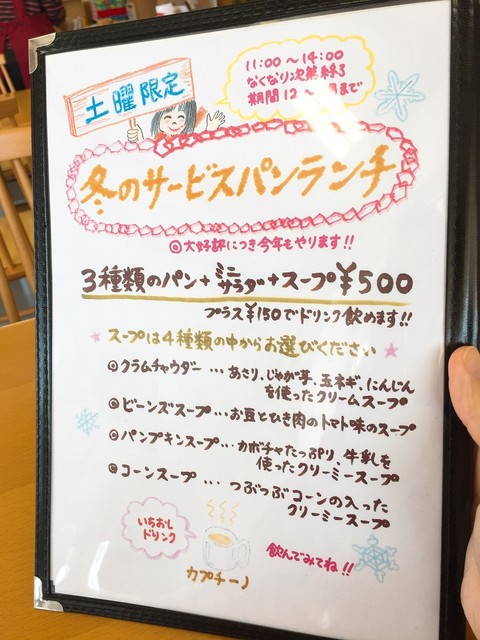 土曜限定
11:00〜14:00
なくなり次第終了
期間12〜月まで
冬のサービスパンランチ
◎大好評につき今年もやります!!
3種類のパン+ミニサラダ+スープ¥500
プラス¥150でドリンク飲めます!!
★スープは4種類の中からお選びください★
◎クラムチャウダー…あさり、じゃが芋、玉ネギ、にんじん
を使ったクリームスープ
◎ビーンズスープ…お豆とひき肉のトマト味のスープ
◎パンプキンスープ…カボチャたっぷり、牛乳を
使ったクリーミースープ
◎コーンスープ…つぶつぶコーンの入った
クリーミースープ
いちおし
ドリンク
カプチーノ
飲んでみてね!!